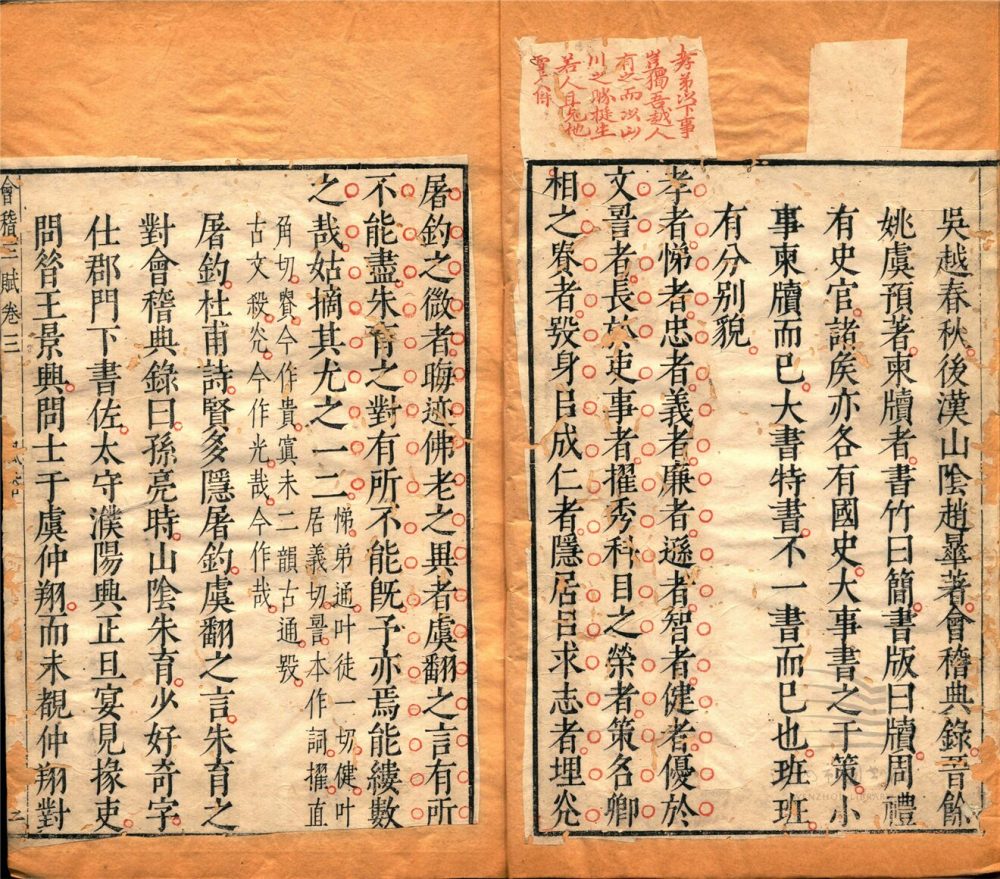 孝弟以下事
豈獨吾越人
有之而以山
川之勝挺生
若人耳見他
吳越春秋後漢山陰趙曅著會稽典錄晉餘
姚虞預著柬牘者書竹曰簡書版曰牘周禮
有史官諸矦亦各有國史大事書之于策小
事柬牘而已大書特書不一書而已也班班
有分別貌
孝者悌者忠者義者廉者遜者智者健者優於
文䛐者長於吏事者擢秀科目之榮者策名卿
相之𦙍者毀身㠯成仁者隱居㠯求志者埋炗
屠釣之微者晦迹佛老之異者虞翻之言有所
不能盡朱育之對有所不能旣予亦焉能縷數
之哉姑摘其尤之一二
悌弟通叶徒一切健叶
居義切䛐本作詞擢直
角切賢今作貴寘未二韻古通毀
古文毀炗今作光㢤今作哉
屠釣杜甫詩賢多隱屠釣虞翻之言朱育之
對會稽典錄曰孫亮時山陰朱育少好奇字
仕郡門下書佐太守濮陽興正旦宴見掾吏
問管王景興問士于虞仲翔而未覩仲翔對
會稽三賦卷三
三